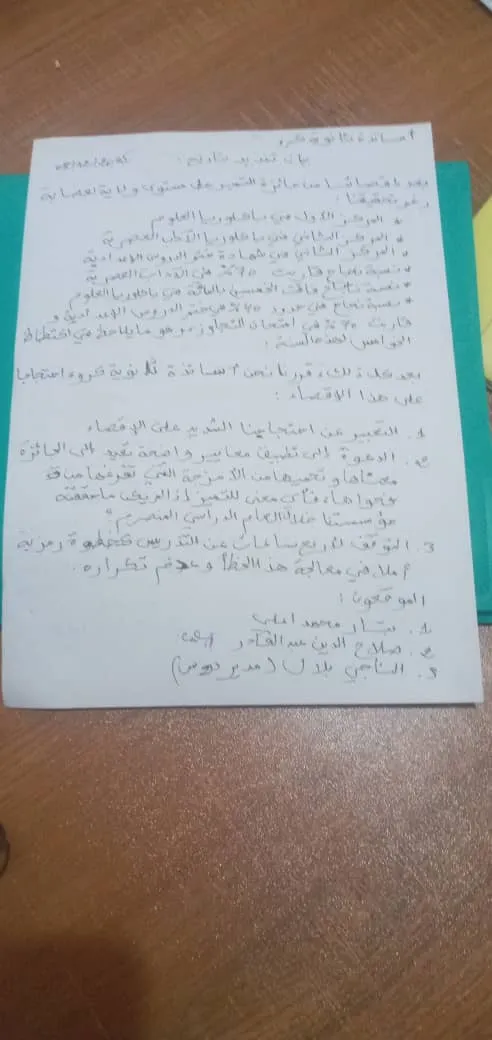 أساتذة ثانوية كرو
بيان تنديد بتاريخ:
بعد إقصائنا من جائزة التميز على مستوى ولاية لعصابة
رغم تحقيقنا:
* المركز الأول في باكلوريا العلوم
* المركز الثاني في باكلوريا الآداب العصرية
* المركز الثاني في شهادة ختم الدروس الإعدادية
* نسبة نجاح قاربت 70% في الآداب العصرية
* نسبة نجاح فاقت الخمسين بالمائة في باكلوريا العلوم
* نسبة نجاح في حدود 40% في ختم الدروس الإعدادية و
قاربت 70% في امتحان التجاوز و هو ما يلاحظ في اكتظاظ
الخوامس لهذه السنة:
بعد كل ذلك قررنا نحن أساتذة ثانوية كرو احتجاجا
على هذا الإقصاء:
1. التعبير عن احتجاجنا الشديد على الإقصاء
2. الدعوة إلى تطبيق معايير واضحة تعيد إلى الجائزة
معناها و تحميها من الأمزجة التي تفرغها من
فحواها، فأي معنى للتميز إذا لم يكن ما حققته
مؤسستنا خلال العام الدراسي المنصرم؟
3. التوقف لأربع ساعات عن التدريس كخطوة رمزية
أملا في معالجة هذا الخطأ و عدم تكراره.
الموقعون:
1. محمد
2. صلاح الدين عبد القادر
3. الناجي بلال (مدير دروس)